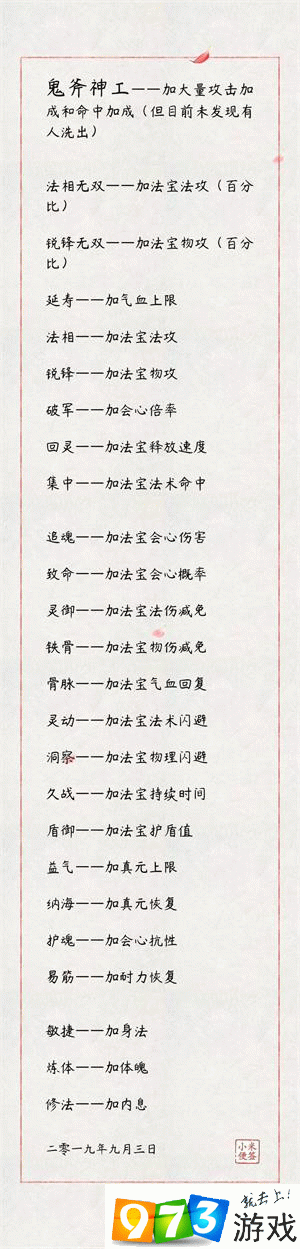 鬼斧神工——加大量攻击加
成和命中加成（但目前未发现有
人洗出）
法相无双——加法宝法攻（百分
比）
锐锋无双——加法宝物攻（百分
比）
延寿——加气血上限
法相——加法宝法攻
锐锋——加法宝物攻
破军——加会心倍率
回灵——加法宝释放速度
集中——加法宝法术命中
追魂——加法宝会心伤害
致命——加法宝会心概率
灵御——加法宝法伤减免
铁骨——加法宝物伤减免
骨脉——加法宝气血回复
灵动——加法宝法术闪避
洞察——加法宝物理闪避
久战——加法宝持续时间
盾御——加法宝护盾值
益气——加真元上限
纳海——加真元恢复
护魂——加会心抗性
易筋——加耐力恢复
敏捷——加身法
炼体——加体魄
修法——加内息
二零一九年九月三日
小米
便签
就去上!
973游戏